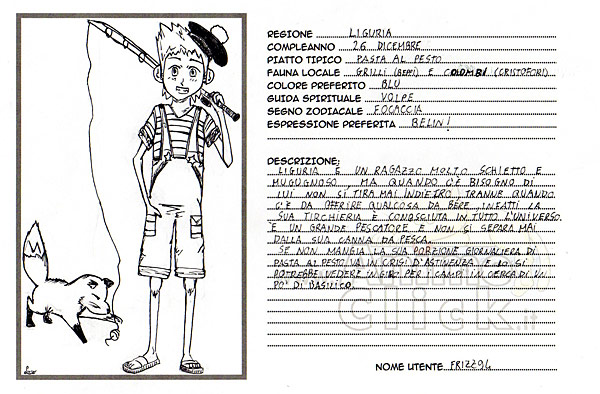 REGIONE LIGURIA
COMPLEANNO 26 DICEMBRE
PIATTO TIPICO PASTA AL PESTO
FAUNA LOCALE GRILLI (BEPPI) E COLOMBI (CRISTOFORI)
COLORE PREFERITO BLU
GUIDA SPIRITUALE VOLPE
SEGNO ZODIACALE FOCACCIA
ESPRESSIONE PREFERITA BELIN!
DESCRIZIONE:
LIGURIA È UN RAGAZZO MOLTO SCHIETTO E
MUGUGNOSO, MA QUANDO C'È BISOGNO DI
LUI NON SI TIRA MAI INDIETRO, TRANNE QUANDO
C'È DA OFFRIRE QUALCOSA DA BERE, INFATTI LA
SUA TIRCHIERIA È CONOSCIUTA IN TUTTO L'UNIVERSO.
È UN GRANDE PESCATORE E NON SI SEPARA MAI
DALLA SUA CANNA DA PESCA.
SE NON MANGIA LA SUA PORZIONE GIORNALIERA DI
PASTA AL PESTO VA IN CRISI D'ASTINENZA E LO SI
POTREBBE VEDERE IN GIRO PER I CAMPI IN CERCA DI UN
PO' DI BASILICO.
Anime
click.it
NOME UTENTE FRIZZ94